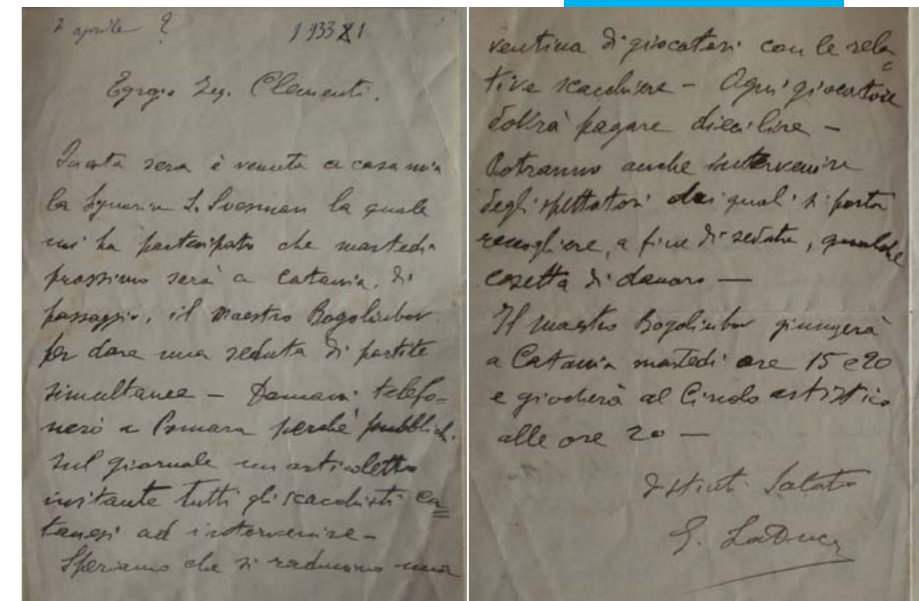 2 aprile ? 1933 XI
Egregio Sig. Clementi.
Questa sera è venuta a casa mia
la Signorina L. la quale
mi ha partecipato che martedì
prossimo sarà a Catania, di
passaggio, il Maestro Bogoliubov
per dare una seduta di partite
simultanee – Domani telefo-
nerò a perchè pubblichi
sul giornale un articoletto
invitante tutti gli scacchisti ca=
tanesi ad intervenire –
Speriamo che si radunino una
ventina di giocatori con le rela=
tive scacchiere – Ogni giocatore
dovrà pagare dieci lire –
Potranno anche intervenire
degli spettatori dai quali si potrà
raccogliere, a fine di seduta, qualche
cosetta di danaro —
Il maestro Bogoliubov giungerà
a Catania martedì ore 15 e 20
e giocherà al Circolo artistico
alle ore 20 —
Distinti Saluti
G. LaDuca